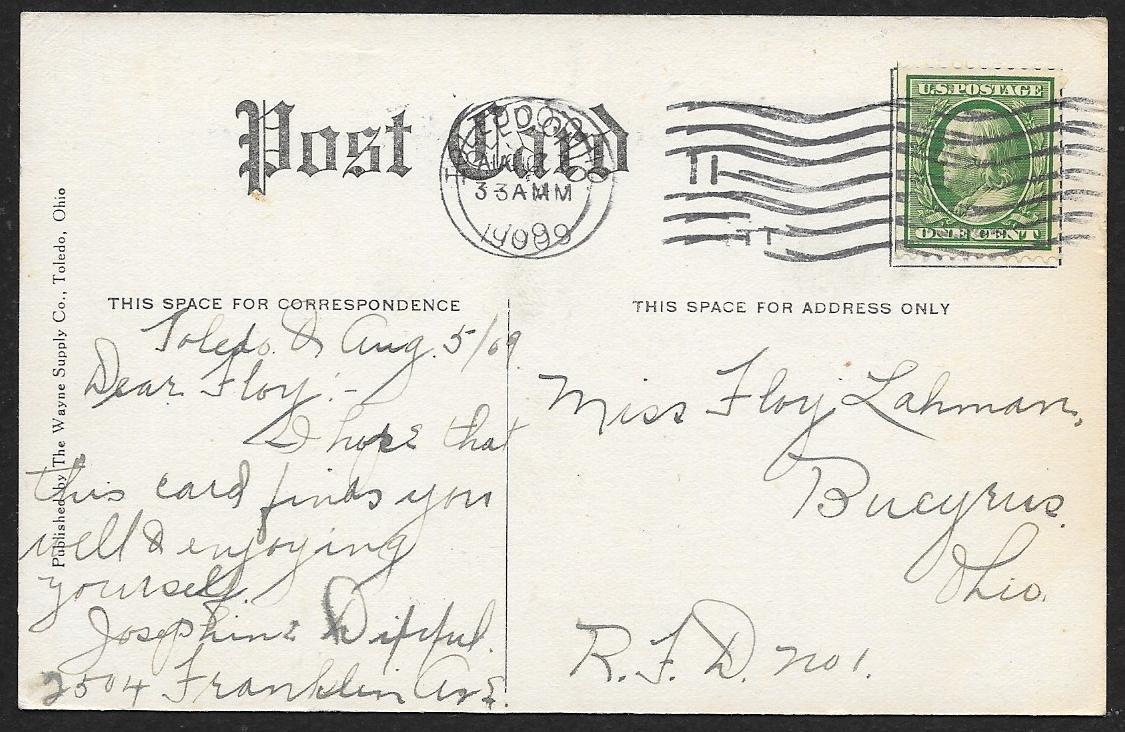 Post Card
TOLEDO, OHIO
AUG
3 AM
1909
11
U.S. POSTAGE
ONE CENT
Published by The Wayne Supply Co., Toledo, Ohio
THIS SPACE FOR CORRESPONDENCE
Toledo O Aug. 5/09
Dear Floy:-
I hope that
this card finds you
well & enjoying
yourself.
Josephine
2504 Franklin Ave.
THIS SPACE FOR ADDRESS ONLY
Miss Floy Lahman,
Bucyrus.
Ohio.
R.F.D. no 1.